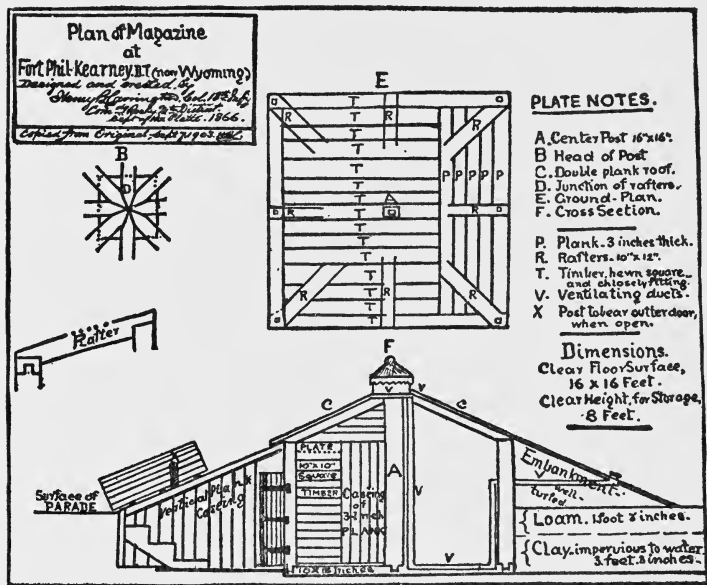 Plan of Magazine
at
Fort Phil-Kearney. N.T (now Wyoming)
Designed and erected by
Henry B. Carrington, Col. 18th Inf.
Com'd'g
1866.
Copied from Original, Sept 1903.
B
D
Rafter
E
T
R
P
D
PLATE NOTES.
A. Center Post 16"x16".
B Head of Post
C. Double plank roof.
D. Junction of rafters.
E. Ground-Plan.
F. Cross Section.
P. Plank-3 inches thick.
R Rafters-10"x12".
T. Timber, hewn square
and chlosely fitting.
V. Ventilating ducts.
X Post to bear outter door,
when open.
Dimensions.
Clear Floor Surface,
16 x 16 Feet.
Clear Height, for Storage,
8 Feet.
F
V V
C C
Surface of
PARADE
Vertical Plank
Casting
PLATE
10"x10"
Square
TIMBER
Casing
of
3-inch
PLANK
A
V
V
Embankment.
well
turfed
Loam. 1 foot 8 inches.
Clay. impervious to water
3 feet. 8 inches.
10x18 Inches